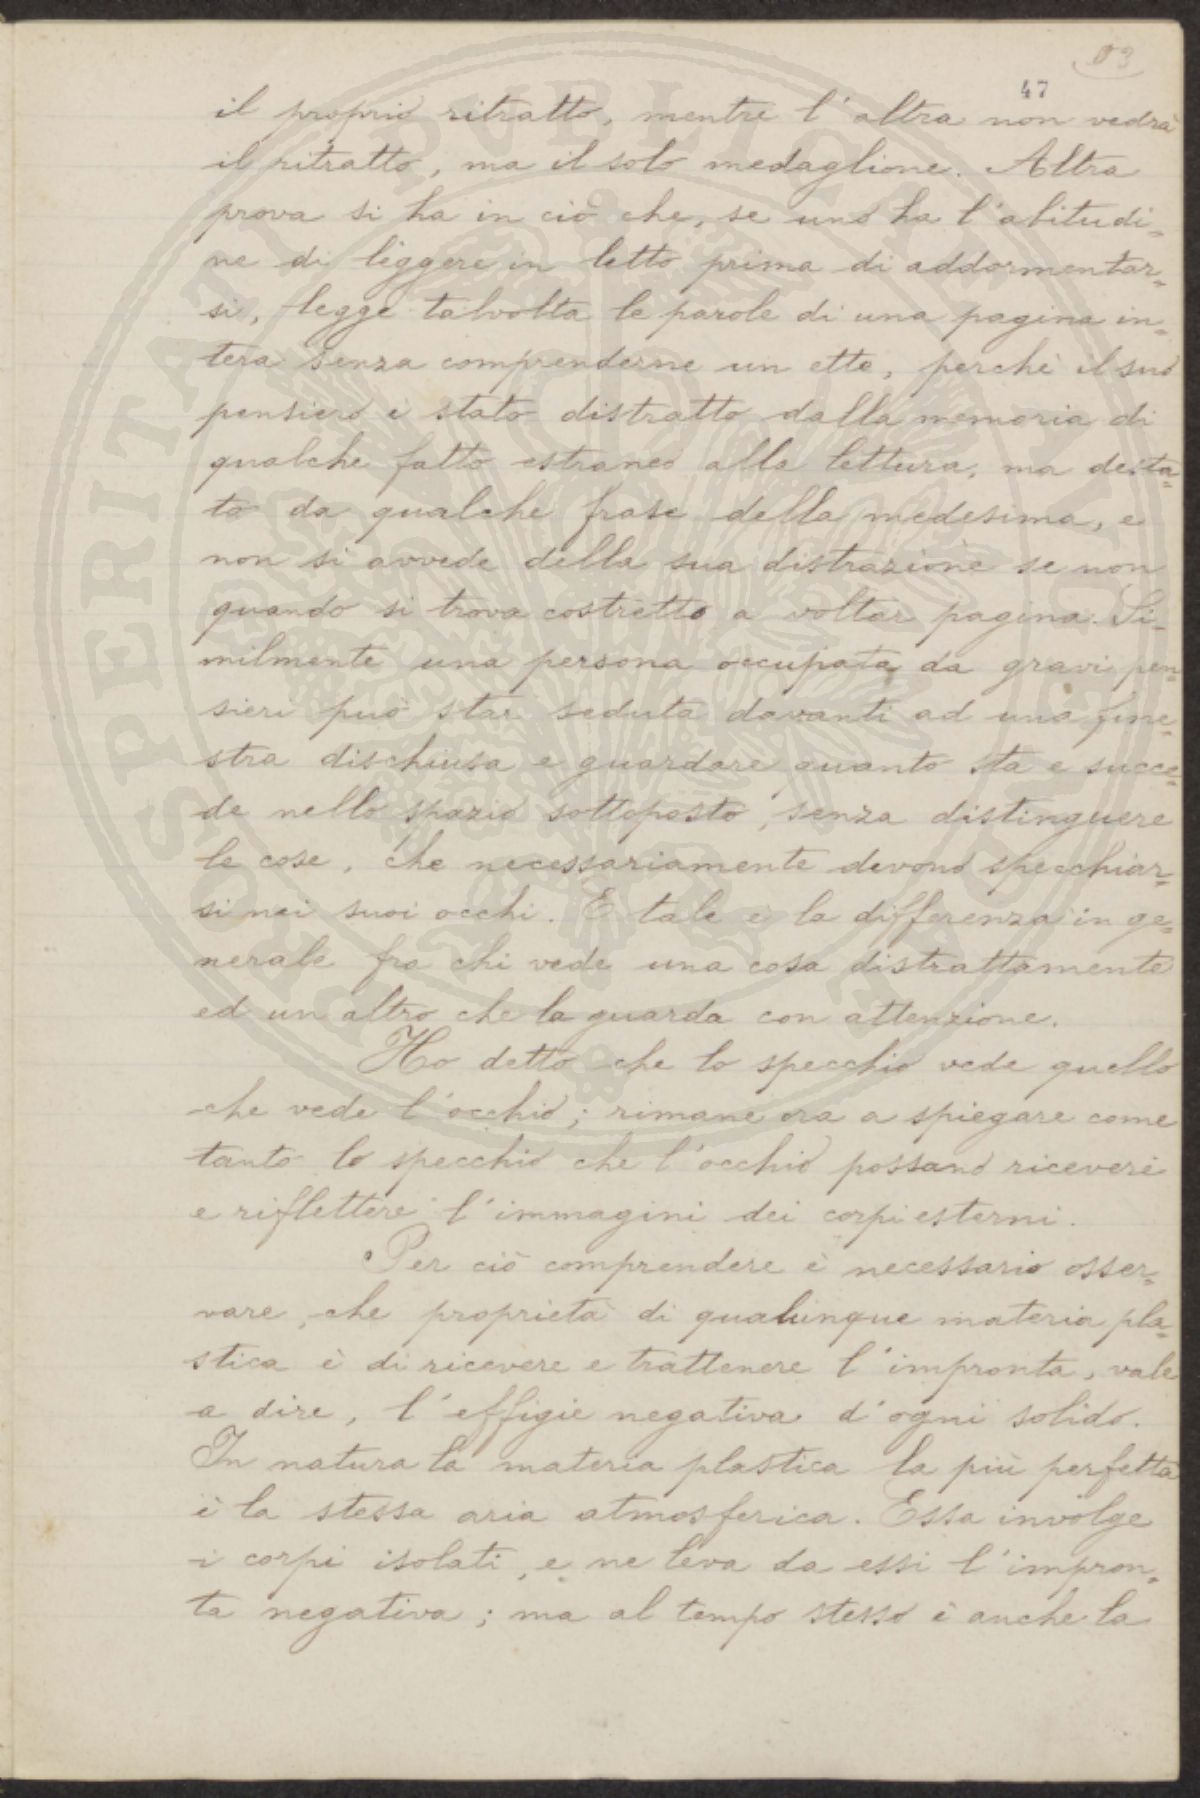 47
il proprio ritratto, mentre l'altra non vedrà
il ritratto, ma il solo medaglione. Altra
prova si ha in ciò che, se uno ha l'abitudi=
ne di leggere in letto prima di addormentar=
si, legge talvolta le parole di una pagina in=
tera senza comprenderne un ette, perchè il suo
pensiero è stato distratto dalla memoria di
qualche fatto estraneo alla lettura, ma desta=
to da qualche frase della medesima, e
non si avvede della sua distrazione se non
quando si trova costretto a voltar pagina. Si=
milmente una persona occupata da gravi pen=
sieri può star seduta davanti ad una fine=
stra dischiusa e guardare quanto sta e succe=
de nello spazio sottoposto, senza distinguere
le cose, che necessariamente devono specchiar=
si nei suoi occhi. E tale è la differenza in ge=
nerale fra chi vede una cosa distrattamente
ed un altro che la guarda con attenzione.
Ho detto che lo specchio vede quello
che vede l'occhio; rimane ora a spiegare come
tanto lo specchio che l'occhio possano ricevere
e riflettere l'immagini dei corpi esterni.
Per ciò comprendere è necessario osser=
vare, che proprietà di qualunque materia pla=
stica è di ricevere e trattenere l'impronta, vale
a dire, l'effigie negativa d'ogni solido.
In natura la materia plastica la più perfetta
è la stessa aria atmosferica. Essa involge
i corpi isolati, e ne leva da essi l'impron=
ta negativa; ma al tempo stesso è anche la
PROSPERITATI PUBLICAE AUGENDAE